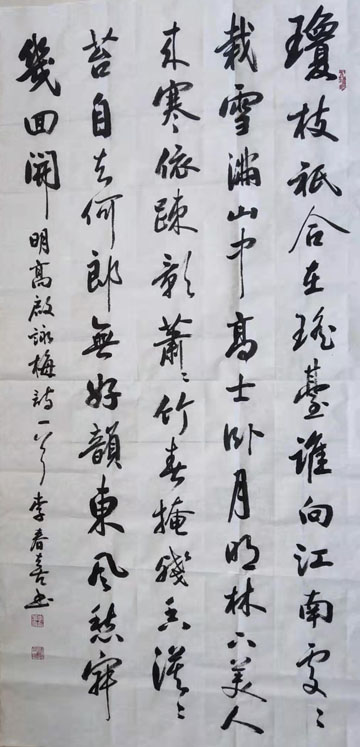 瓊枝祇合在瑤臺誰向江南處々
栽雪滿山中高士卧月明林下美人
来寒依踈影蕭々竹春掩殘香漠々
苔自去何郎無好韻東風愁寂
幾回開 明高啟詠梅詩一首 李春喜書